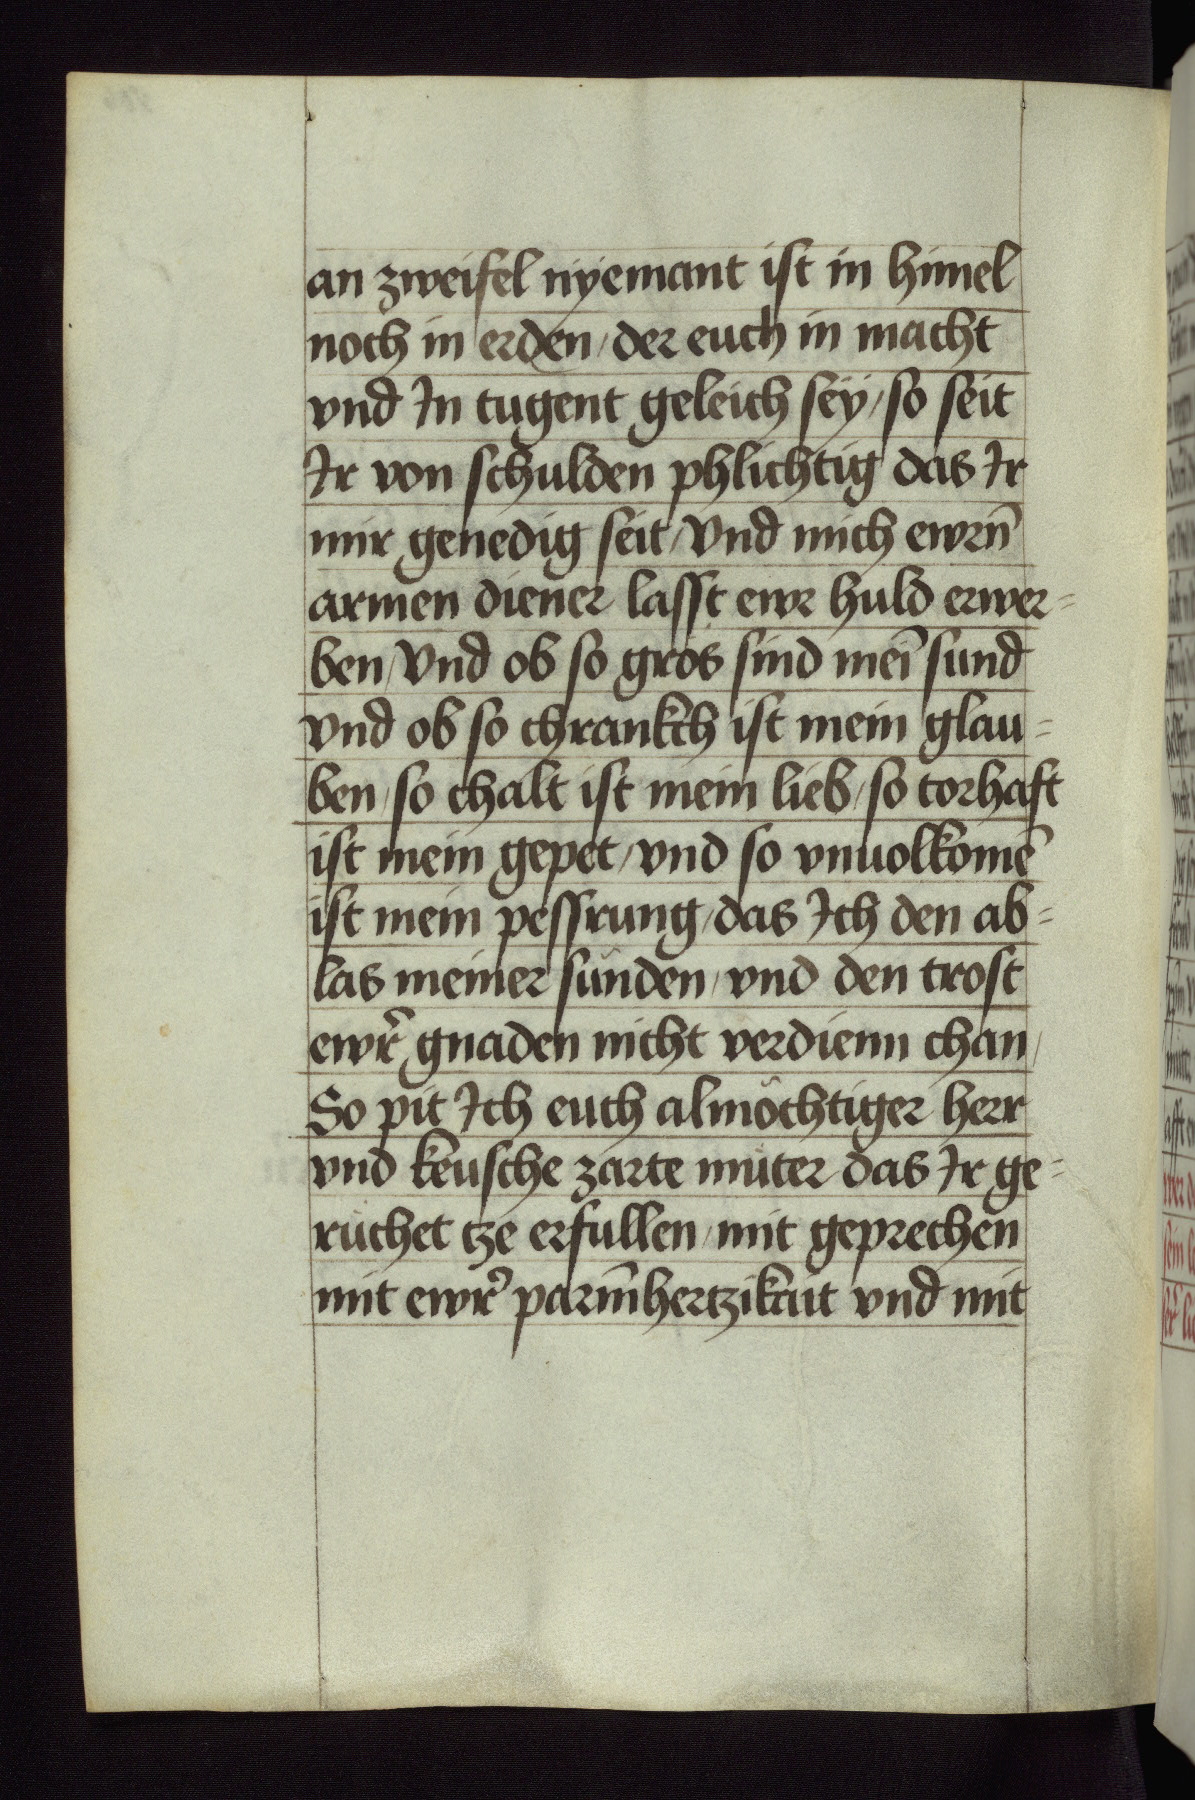 an zweifel nyemant ist in himel
noch in erden / der euch in macht
vnd In tugent geleich sey / so seit
Ir von schulden phlichtig das Ir
mir genedig seit / Vnd mich ewrn̄
armen diener lasst ewr huld erwer=
ben / Vnd ob so gros sind mei᷑ sund
vnd ob so chrankch ist mein glau=
ben / so chalt ist mein lieb / so torhaft
ist mein gepet / vnd so vnuolkomē
ist mein pessrung / das Ich den ab=
las meiner sünden / vnd den trost
ewr̉ gnaden nicht verdienn chan /
So pit Ich euch almöchtiger herr
vnd keusche zarte muter das Ir ge=
ruchet tze erfullen / mit geprechen
mit ewr̉ parm̄hertzikait vnd mit